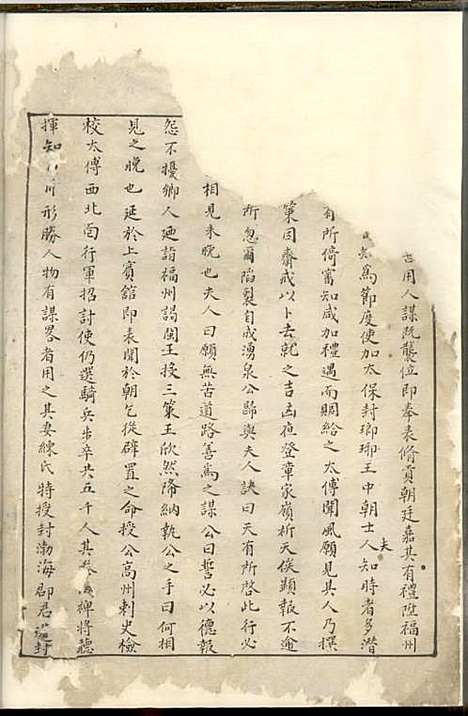 古用人謀既襲位即奉表脩貢朝廷嘉其有禮陞福州
知為節度使加太保封瑯琊王中朝士大夫人知時者多潛
有所倚審知咸加禮遇而賙給之太傅聞風願見其人乃撰
策因齋戒以卜去就之吉凶夜登章家嶺祈天俟顯報不逾
所忽爾陷製自成湧泉公歸與夫人訣曰天有所啓此行必
相見未晚也夫人曰願無苦道路善為之謀公曰誓必以德報
怨不擾鄉人廼詣福州謁閩王授三策王欣然降納執公之手曰何相
見之晚也延於上賓館即表聞於朝乞後辟置之命授公高州刺史檢
校太傅西北面行軍招討使仍選騎兵步卒共五千人其 裨將聽
揮知 形勝人物有謀畧者用之其妻練氏特授封渤海郡君 封